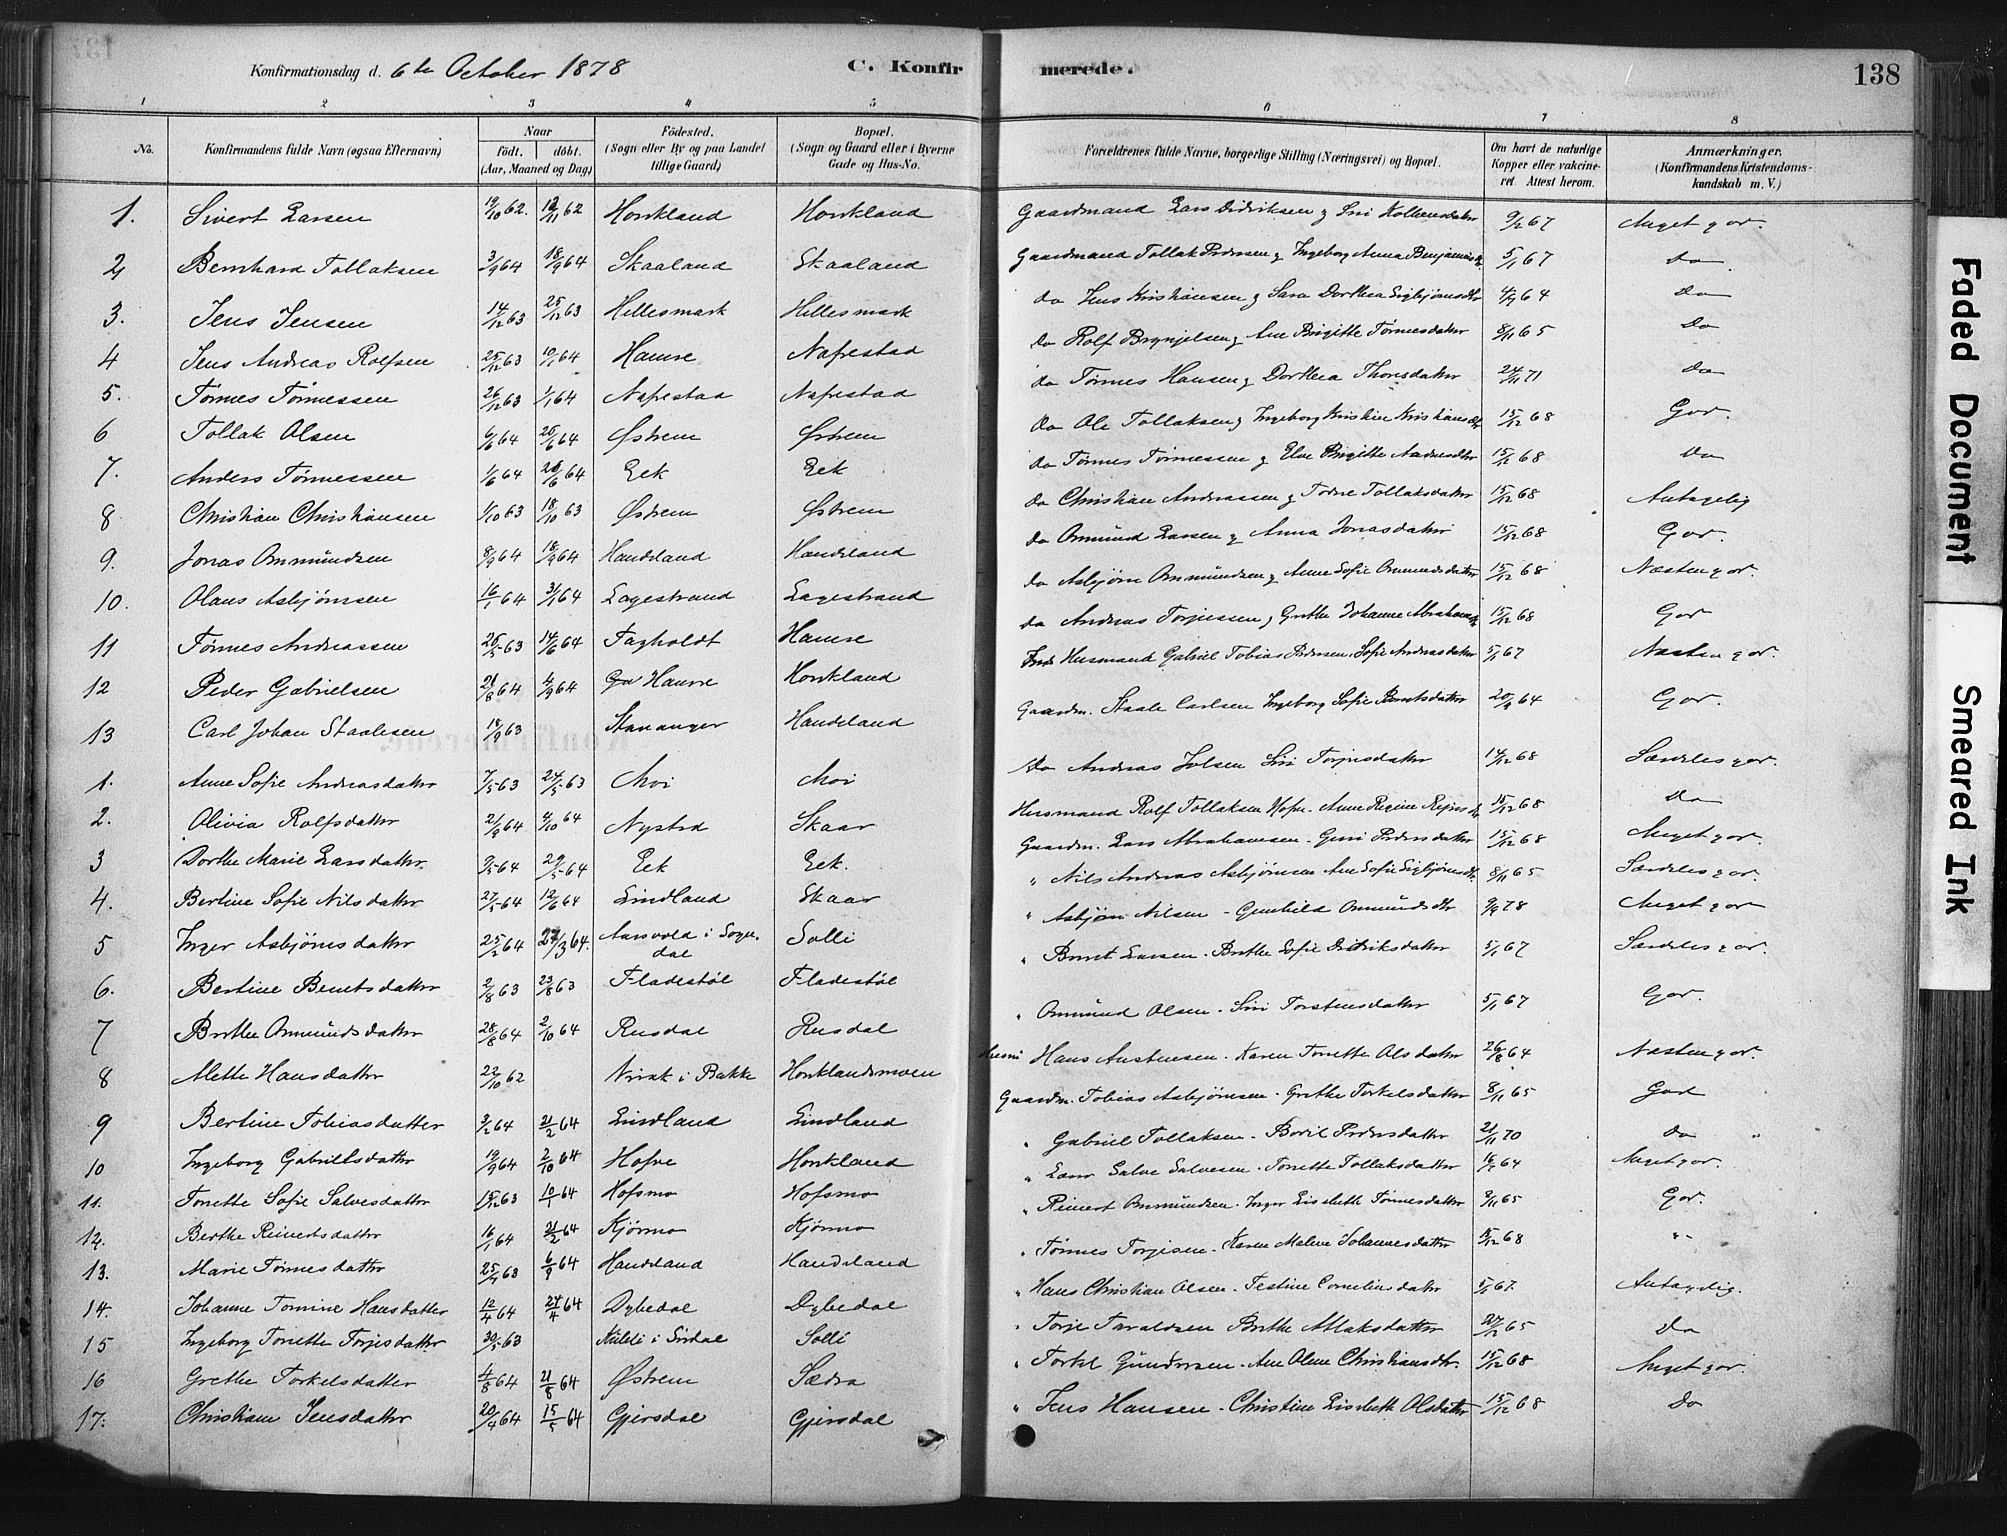 Konfirmationsdag d. 6te October 1878 C. Konfirmerede. 138
1 2 3 4 5 6 7 8
No. Konfirmandens fulde Navn (ogsaa Efternavn) Naar födt. döbt. (Aar, Maaned og Dag) Födested. (Sogn eller By og paa Landet tillige Gaard) Bopæl. (Sogn og Gaard eller i Byerne Gade og Hus-No. Forældrenes fulde Navne, borgerlige Stilling (Næringsvei) og Bopæl. Om havt de naturlige Kopper eller vakcineret. Attest herom. Anmærkninger. (Konfirmandens Kristendomskundskab m. V.)
1. Sivert Larsen 19/10 62. 12/11 62 Honkland Honkland Gaardmand Lars Didriksen & Siri 9/2 67 Meget gor.
2 Bernhard Tollaksen 3/9 64 18/9 64 Skaaland Skaaland Gaardmand Tollak Pedersen & Ingeborg Anna 5/1 67 do
3. Jens Jensen 14/12 63 25/12 63 Hellesmark Hellesmark do Jens Kristiansen & Sara Dorthea Sigbjørnsdtr 4/9 64 do
4 Jens Andreas Rolfsen 25/12 63 10/1 64 Hamre Nafrestad do Rolf Brynjelsen & Ane Birgitte Tønnesdatter 8/11 65 Do
5. Tønnes Tønnessen 26/12 63 1/1 64 Nafrestad Nafrestad do Tønnes Hansen & Dorthea Thorsdatter 24/11 71 do
6 Tollak Olsen 6/6 64 26/6 64 Østrem Østrem do Ole Tollaksen & Ingeborg Kristine 15/12 68 Gor.
7. Anders Tønnessen 1/6 64 26/6 64 Eek Eek do Tønnes Tønnessen & Elen Birgitte 15/12 68 do
8 Christian Christiansen 1/10 63 18/10 63 Østrem Østrem do Christian Andreassen & Tollaksdatter 15/12 68 Antagelig
9. Jonas Ommundsen 8/9 64 18/9 64 Handeland Handeland do Ommund Larsen & Anna Jonasdatter 15/12 68 Gor.
10. Olaus Asbjørnsen 16/1 64 3/1 64 Lagestrand Lagestrand do Asbjørn Ommundsen & Anne Sofie Ommundsdatter 15/12 68 Næsten gor.
11 Tønnes Andreassen 26/5 63 14/6 64 Fagholdt Hamre do Andreas Torjussen & Grethe Johanne 15/12 68 Gor
12 Peder Gabrielsen 21/8 64 4/9 64 Hamre Honkland Husmand Gabriel Tobias Pedersen. Sofie Andreasdatter 5/1 67 Næsten gor.
13 Carl Johan Staalesen 18/9 63 Stavanger Handeland Gaardm. Staale Carlsen Ingeborg Sofie Berntsdatter 20/9 64 Gor.
1. Anne Sofie Andreasdatter 7/5 63 24/5 63 Moi Moi Do Andreas Jolsen Siri Torjusdatter 14/12 68 Særdeles gor.
2. Olivia Rolfsdatter 21/9 64 9/10 64 Nysted Skaar Husmand Rolf Tollaksen Hofve. Anne Regine 15/12 68 Do
3 Dorthe Marie Larsdatter 9/5 64 29/5 64 Eek Eek. Gaardm. Lars Abrahamsen. Guri Pedersdatter 15/12 68 Meget gor.
4. Bertine Sofie Nilsdatter 27/5 64 12/6 64 Lindland Skaar " Nils Andreas Asbjørnsen Ane Sofie Sigbjørnsdtr. 8/11 65 Særdeles gor.
5 Inger Asbjørnsdatter 25/2 64 27/3 64. Aarsvold i Sogndal Solli " Asbjørn Nilsen - Gunhild Ommundsdtr 9/9 78 Meget gor
6. Bertine Berntsdatter 2/8 63 23/8 63 Fladestøl Fladestøl " Bernt Larsen. Berthe Sofie Didriksdatter 5/1 67 Særdeles gor.
7 Berthe Ommundsdatter 28/8 64 2/10 64 Rusdal Rusdal " Ommund Olsen. Siri Torstensdatter 5/1 67 Gor.
8 Mette Hansdatter 22/10 62 i Bakke Honklandsmoen Husm Hans Austensen. Karen Tonette Olsdatter 26/8 64 Næsten gor.
9 Bertine Tobiasdatter 3/2 64 21/2 64 Lindland Lindland Gaardm. Tobias Asbjørnsen. Grethe Torkelsdatter 8/11 65 Godt
10 Ingeborg Gabrielsdatter 19/9 64 2/10 64 Hofve Honkland " Gabriel Tollaksen. Boril Pedersdatter 21/11 70 do "
11. Tonette Sofie Salvesdatter 15/12 63 10/1 64 Hofsmo Hofsmo " Salve Salvesen. Tonette Tollaksdatter 16/9 64 Meget gor.
12. Berthe Reinertsdatter 16/1 64 21/2 64 Kjørmo Kjørmo " Reinert Ommundsen. Inger Lisebeth Tønnesdatter 8/11 65 Gor.
13. Marie Tønnesdatter 25/9 63 6/9 64 Handeland Handeland " Tønnes Torjisen. Karen Malene Johannesdatter 15/12 68 "
14. Johanne Tomine Hansdatter 10/4 64 24/4 64 Dybedal Dybedal " Hans Christian Olsen. Testine Corneliusdatter 5/1 67. Antagelig.
15 Ingeborg Tonette Torjesdatter 30/5 63 i Sirdal Solli " Torje Taraldsen Berthe Atlaksdatter 27/12 65 Do
16 Grethe Torkelsdatter 4/8 64 21/8 64 Østrem Sædra " Torkel Gundersen. Ane Olene Christiansdtr. 15/12 68 Meget gor.
17. Christiane Jensdatter 20/4 64 15/5 64 Gjersdal Gjersdal " Jens Hansen. Christine Lisebeth Olsdatter 15/12 68 Do
Faded Document
Smeared Ink